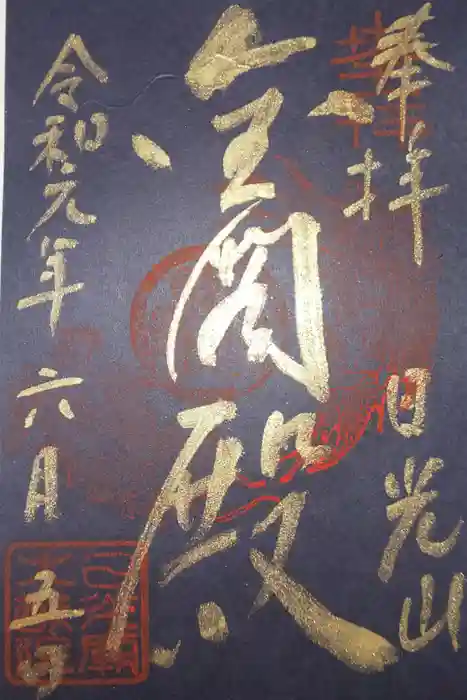 奉拝　日光山
金閣殿
令和元年六月五日